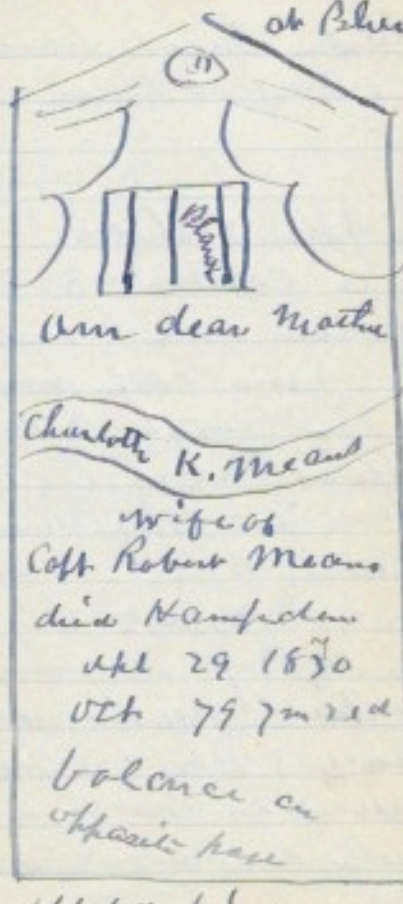 at
Our dear Mother
Charlotte K. Means
wife of
Capt Robert Means
died Hampden
Apl 29 1870
79 7m 2 d
balance on
opposite page